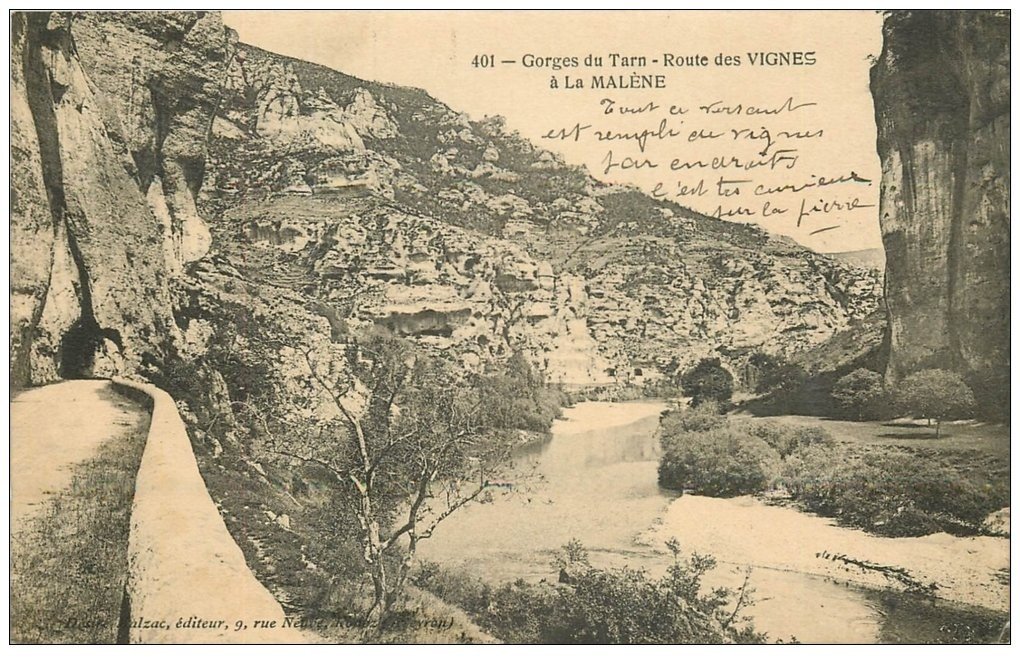 401 — Gorges du Tarn - Route des VIGNES
à La MALÈNE
Tout ce versant
est rempli de vignes
par endroits
c'est très curieux
sur la pierre
alzac, éditeur, 9, rue Neuve, Rodez (Aveyron)